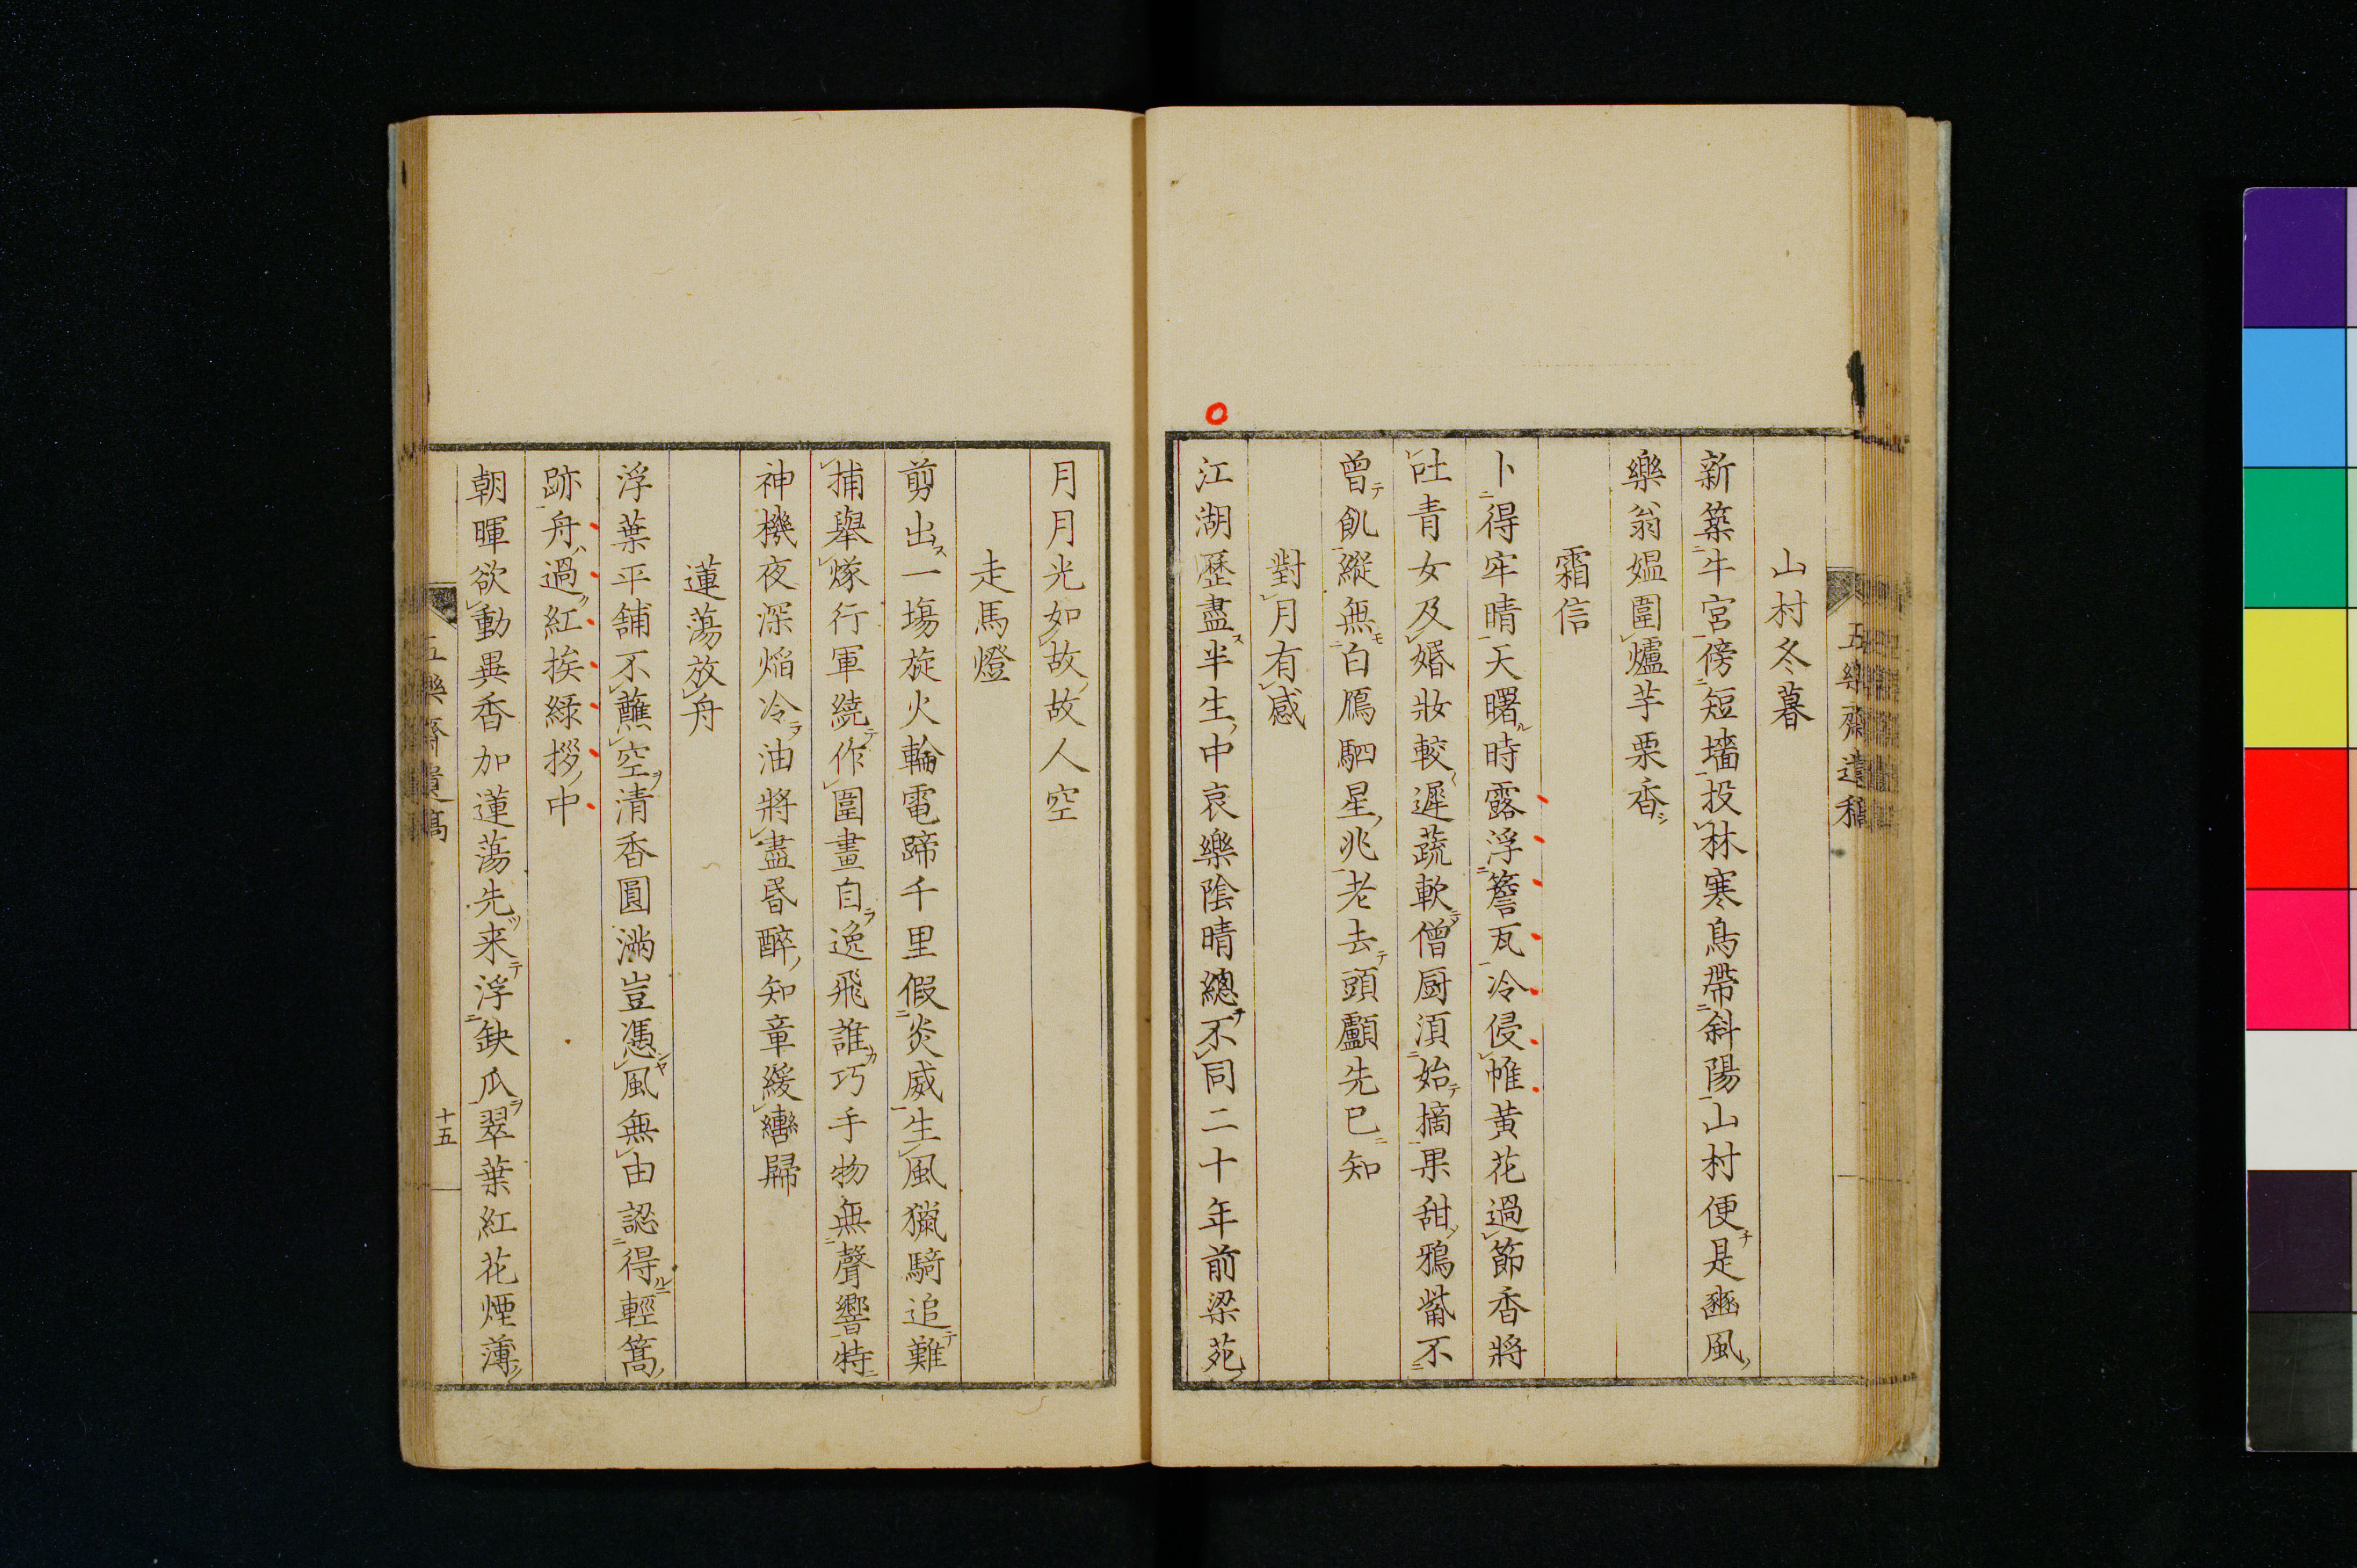 五樂齋遺稿
山村冬暮
新築牛宮傍短墻投林寒鳥帶斜陽山村便是豳風
樂翁媼圍爐芋栗香
霜信
卜得牢晴天曙時露浮簷瓦冷侵帷黃花過節香將
吐青女及婚妝較遲蔬軟僧厨湏始摘果甜鴉觜不
曾飢縱無白鴈駟星兆老去頭顱先已知
對月有感
江湖歷盡半生中哀樂陰晴總不同二十年前梁苑
月月光如故故人空
走馬燈
剪出一塲旋火輪電蹄千里假炎威生風獵騎追難
捕舉燧行軍繞作圍畫自逸飛誰巧手物無聲響特
神機夜深焰冷油將盡昏醉知章緩轡歸
蓮蕩放舟
浮葉平舖不蘸空清香圓滿豈憑風無由認得輕篙
跡舟過紅挨緑拶中
朝暉欲動異香加蓮蕩先来浮缺瓜翠葉紅花煙薄
五樂齋遺稿
十五